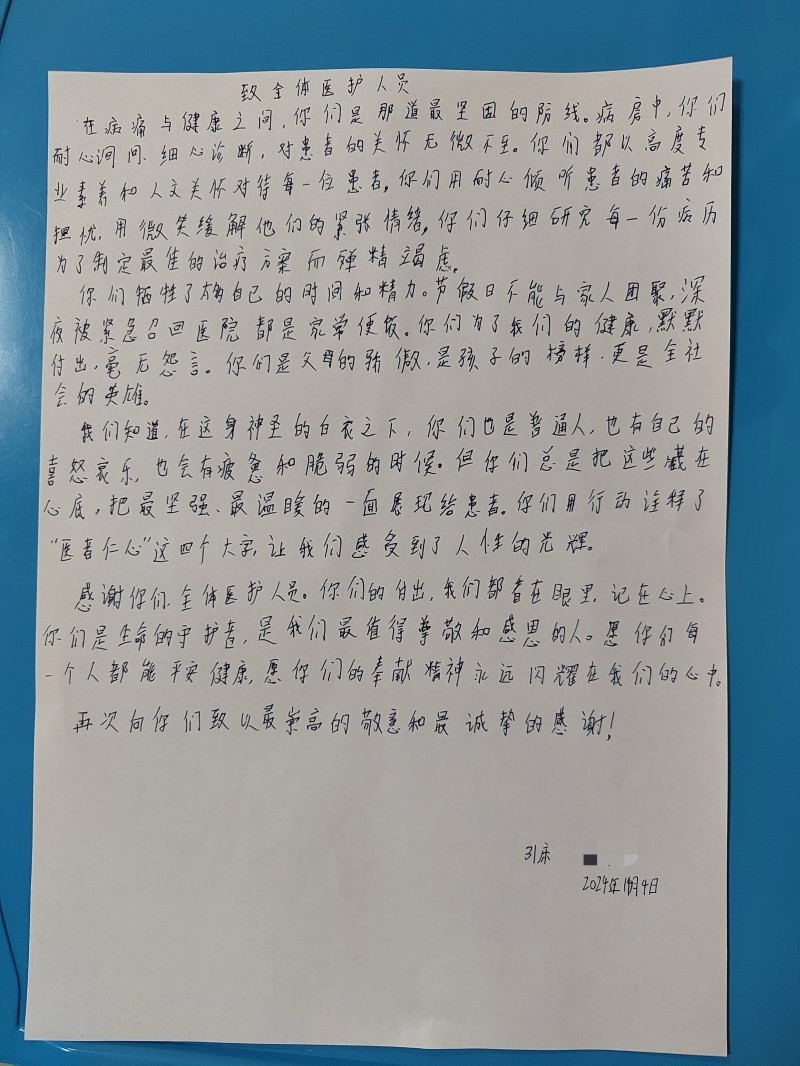 致全体医护人员
在病痛与健康之间，你们是那道最坚固的防线。病房中，你们
耐心询问、细心诊断，对患者的关怀无微不至。你们都以高度专
业素养和人文关怀对待每一位患者。你们用耐心倾听患者的痛苦和
担忧，用微笑缓解他们的紧张情绪。你们仔细研究每一份病历
为了制定最佳的治疗方案而殚精竭虑。
你们牺牲了太多自己的时间和精力。节假日不能与家人团聚，深
夜被紧急召回医院都是家常便饭。你们为了我们的健康，默默
付出，毫无怨言。你们是父母的骄傲，是孩子的榜样，更是全社
会的英雄。
我们知道，在这身神圣的白衣之下，你们也是普通人，也有自己的
喜怒哀乐，也会有疲惫和脆弱的时候。但你们总是把这些藏在
心底，把最坚强、最温暖的一面展现给患者。你们用行动诠释了
“医者仁心”这四个大字，让我们感受到了人性的光辉。
感谢你们，全体医护人员。你们的付出，我们都看在眼里，记在心上。
你们是生命的守护者，是我们最值得尊敬和感恩的人。愿你们每
一个人都能平安健康，愿你们的奉献精神永远闪耀在我们的心中。
再次向你们致以最崇高的敬意和最诚挚的感谢！
31床
2024年11月4日